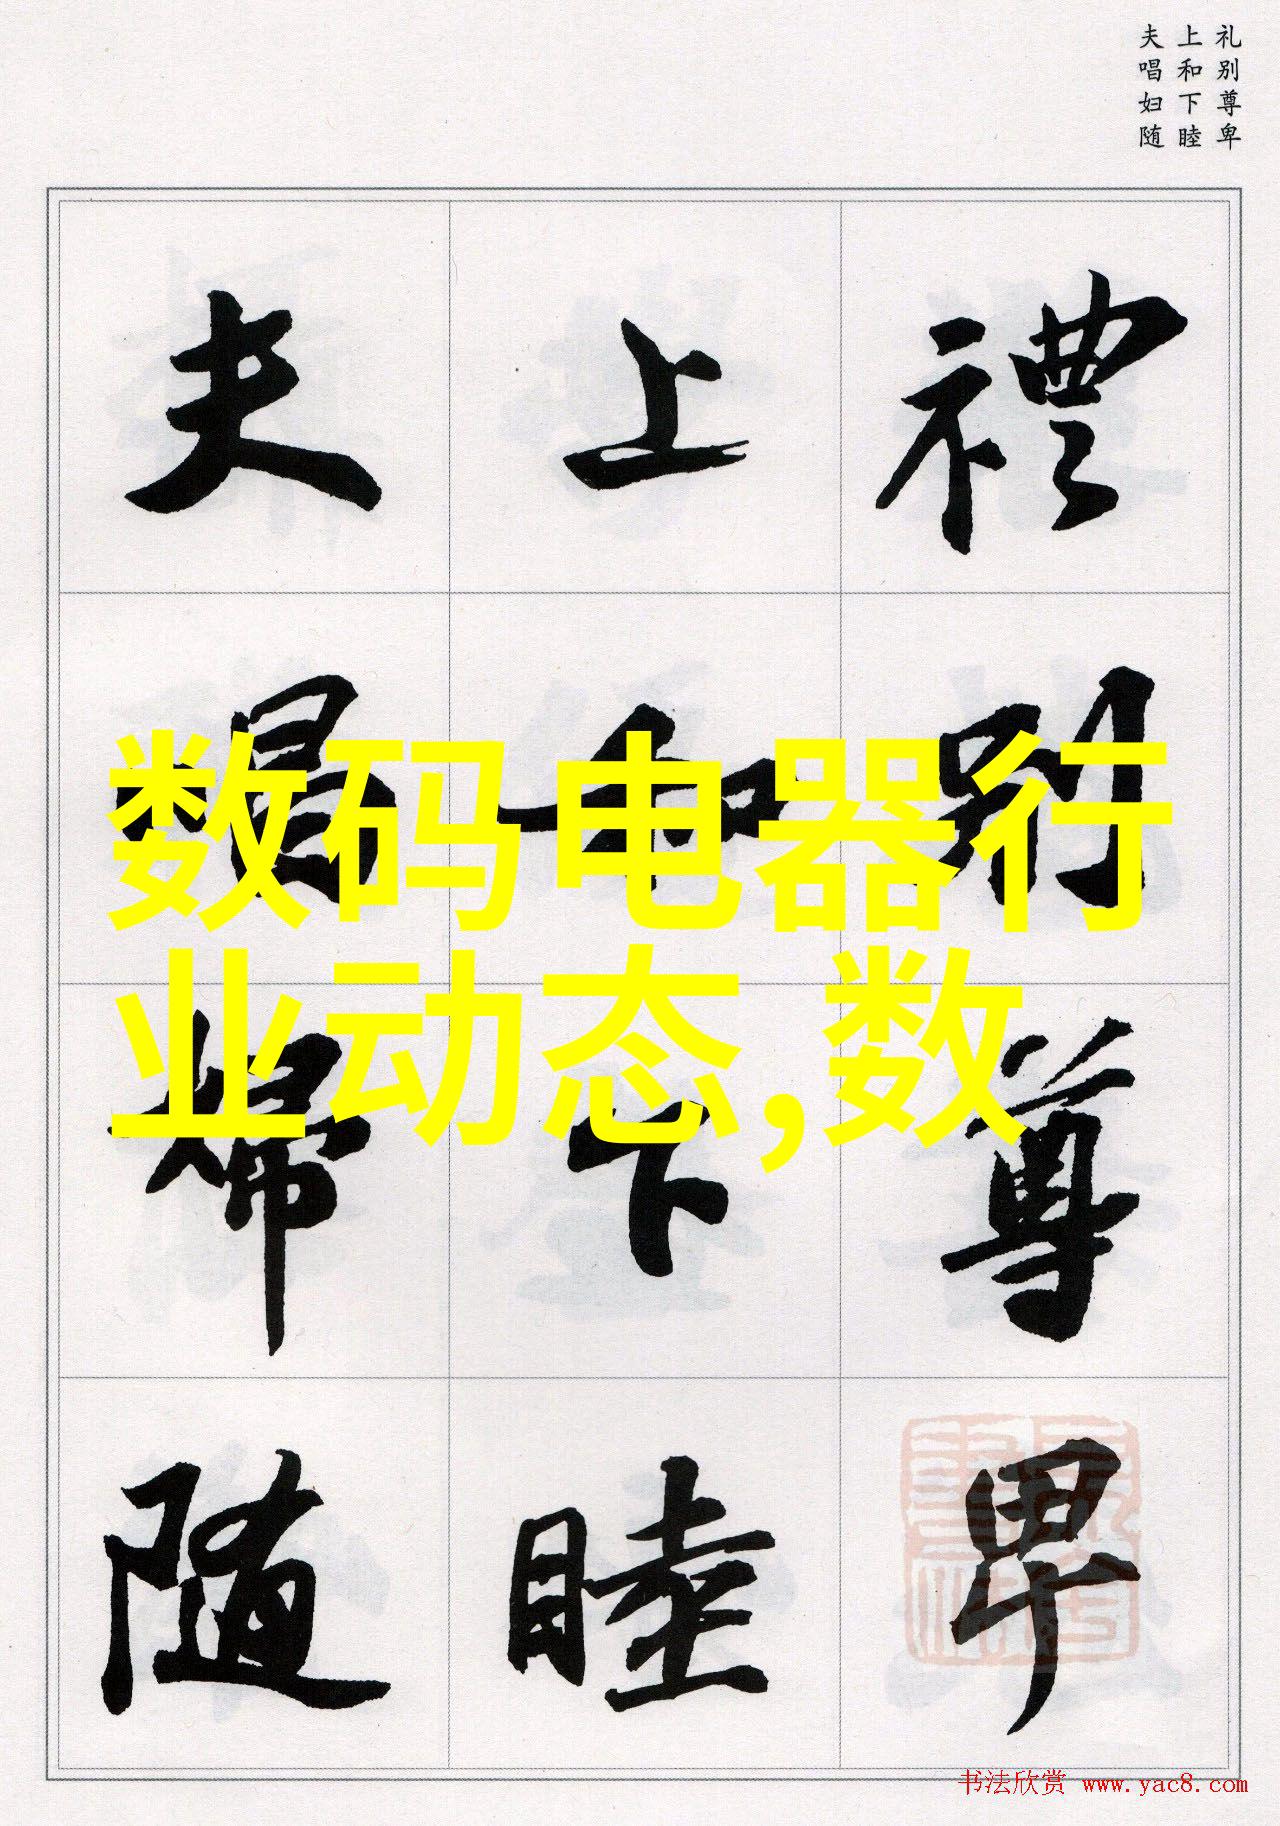 礼别尊卑
上和下睦
夫唱妇随
禮别尊卑
上和下睦
夫唱婦随
数码电器行
业动态,数
书法欣赏 www.yac8.com